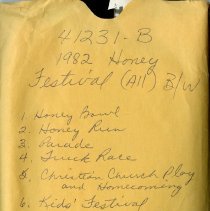 41231-B
1982 Honey
Festival (All) B/W
1. Honey Bowl
2. Honey Run
3. Parade
4. Truck Race
5. Christian Church Play
and Homecoming
6. Kids' Festival